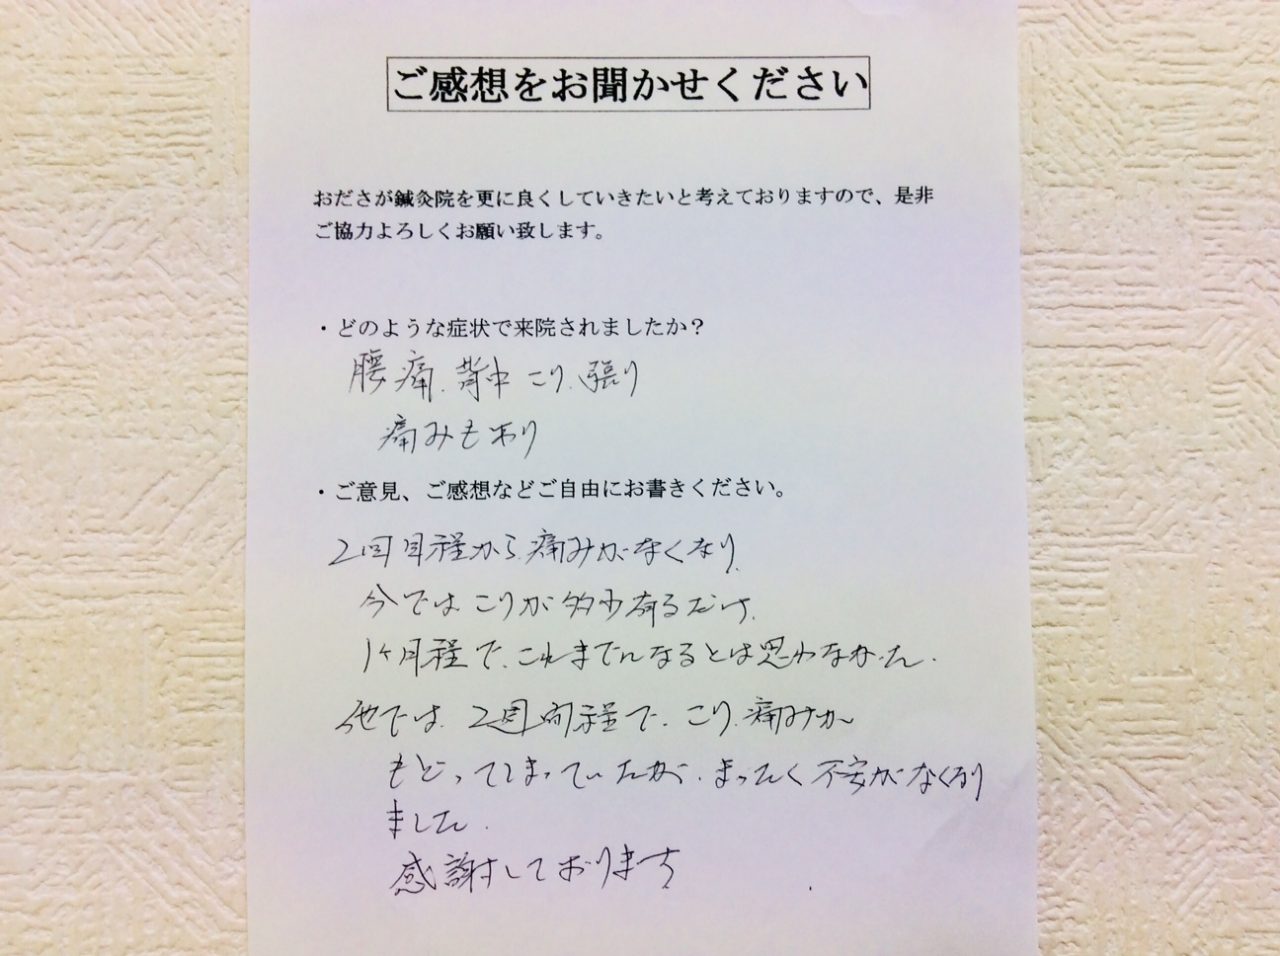 ご感想をお聞かせください
おださが鍼灸院を更に良くしていきたいと考えておりますので、是非
ご協力よろしくお願い致します。
・どのような症状で来院されましたか？
腰痛、背中こり、張り
痛みもあり
・ご意見、ご感想などご自由にお書きください。
2回目程から痛みがなくなり、
今ではこりが多少有るだけ、
1ヶ月程で、これまでになるとは思わなかった。
他では、2週間程で、こり、痛みが
もどってしまっていたが、まったく不安がなくなり
ました。
感謝しております